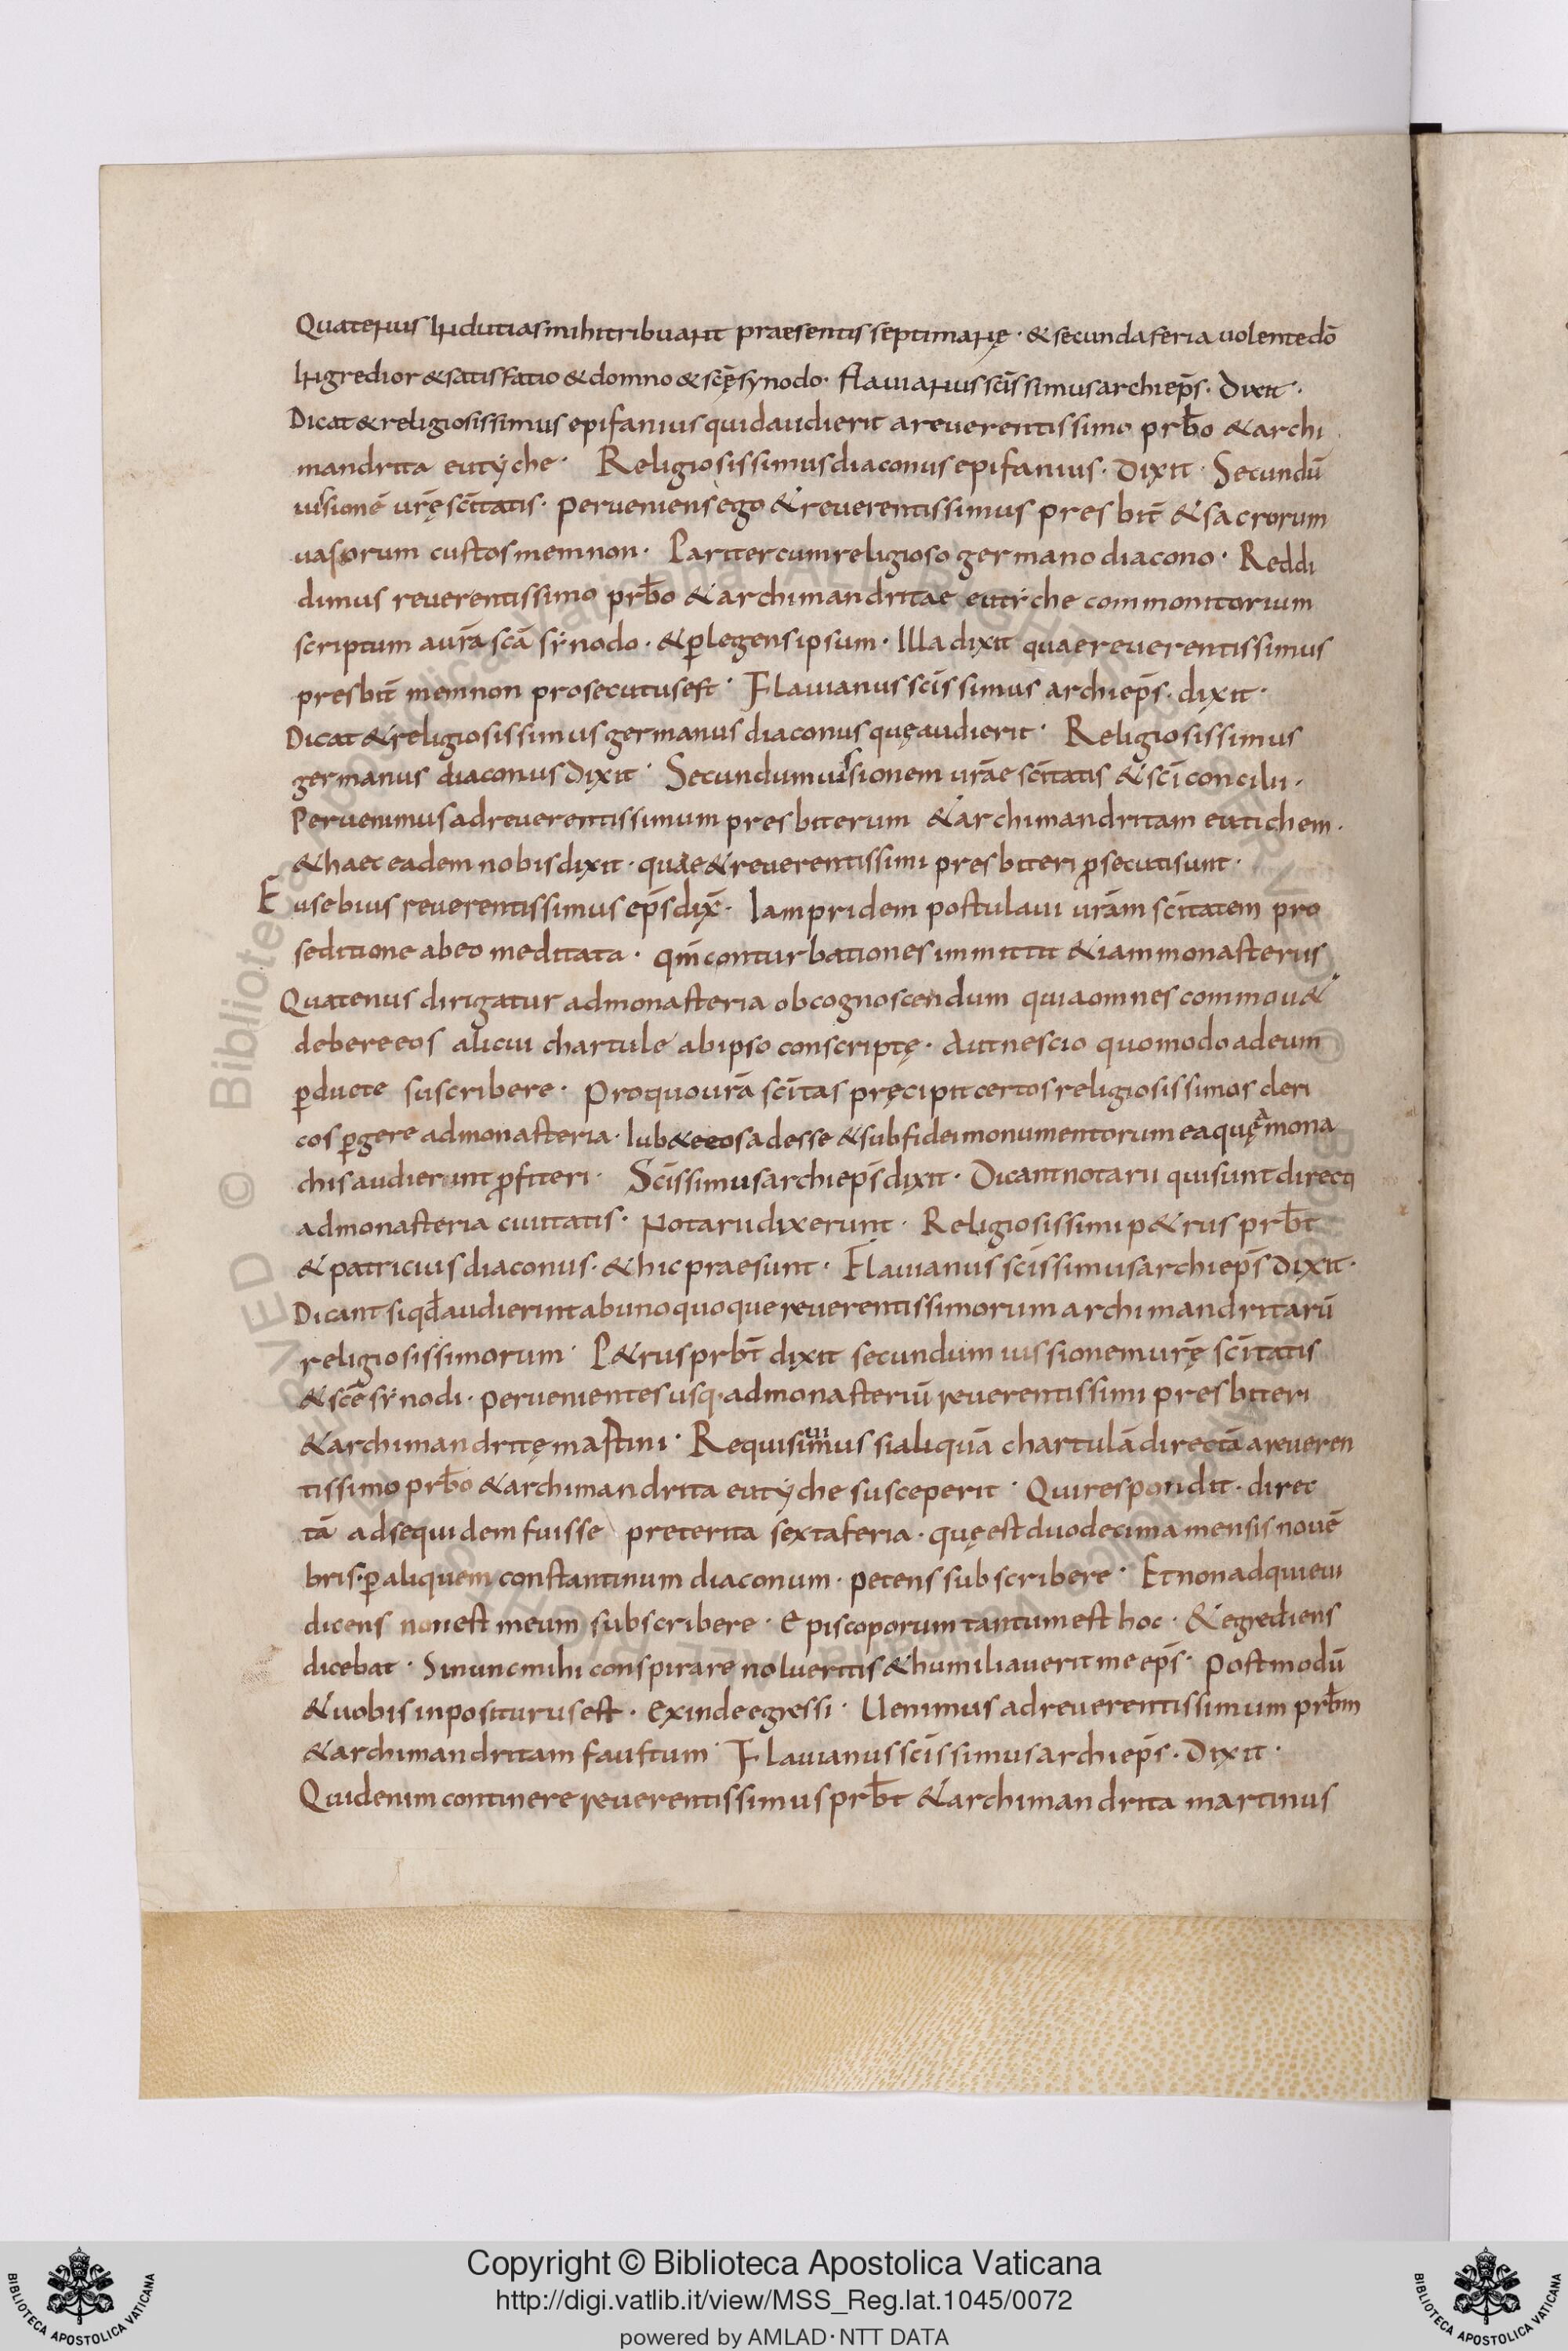 Quatenus Indutias mihi tribuant praesentis septimanę · & secunda feria uolente dō
Ingredior & satis fatio & domno & scę̄ synodo · flauianus scīssimus archiep̄s · Dixit ·
Dicat & religiosissimus epifanius quid audierit a reuerentissimo prƀo & archi
mandrita eutyche · Religiosissimus diaconus epifanius · Dixit · Secundū
iussionē urę̄ scītatis · perueniens ego & reuerentissimus presbit̄ & sacrorum
uasorum custos memnon · Pariter cum religioso germano diacono · Reddi
dimus reuerentissimo prƀo & archimandritae eutiche commonitorium
scriptum a urā scā synodo · & ꝑlegens ipsum · Illa dixit quae reuerentissimus
presbit̄ memnon prosecutus est · Flauianus scīssimus archiep̄s · dixit ·
Dicat & religiosissimus germanus diaconus quę audierit · Religiosissimus
germanus diaconus Dixit · Secundum iussionem urāe scītatis & scī concilii ·
Peruenimus ad reuerentissimum presbiterum & archimandritam eutichem ·
& haec eadem nobis dixit · quae & reuerentissimi presbiteri ꝓsecuti sunt ·
Eusebius reuerentissimus ep̄s dix̄ · Iam pridem postulaui urām scītatem pro
seditione ab eo meditata · qm̄ conturbationes immittit & iam monasteriis
Quatenus dirigatur ad monasteria ob cognoscendum quia omnes commou&
debere eos alicui chartule ab ipso conscriptę · Aut nescio quomodo ad eum
ꝑducte suscribere · Pro quo urā scītas pręcipit certos religiosissimos cleri
cos ꝑgere ad monasteria · Iub& eeos adesse & sub fidei monumentorum ea quę a mona
chis audierint ꝓfiteri · Scīssimus archiep̄s dixit · Dicant notarii qui sunt directi
ad monasteria ciuitatis · Notarii dixerunt · Religiosissimi p&rus prƀt
& patricius diaconus · & hic praesunt · Flauianus scīssimus archiep̄s Dixit ·
Dicant si qđ audierint ab uno quoque reuerentissimorum archimandritarū
religiosissimorum · P&rus prƀt dixit secundum iussionem urę̄ scītatis
& scē synodi · peruenientes usq· ad monasteriū reuerentissimi presbiteri
& archimandritę mastini · Requisiuimus si aliquā chartulā directā a reueren
tissimo prƀo & archimandrita eutyche susceperit · Qui respondit · direc
tā ad se quidem fuisse preterita sexta feria · quę est duodecima mensis nouē
bris · ꝑ aliquem constantinum diaconum · petens subscribere · Et non adquieui
dicens non est meum subscribere · Episcoporum tantum est hoc · & egrediens
dicebat · Si nunc mihi conspirare nolueritis & humiliauerit me ep̄s · postmodū
& uobis inpositurus est · Exinde egressi · Uenimus ad reuerentissimum prƀm
& archimandritam faustum · Flauianus scīssimus archiep̄s · Dixit ·
Quid enim continere reuerentissimus prƀt & archimandrita martinus
Copyright © Biblioteca Apostolica Vaticana
http://digi.vatlib.it/view/MSS_Reg.lat.1045/0072
powered by AMLAD·NTT DATA
BIBLIOTECA APOSTOLICA VATICANA
BIBLIOTECA APOSTOLICA VATICANA